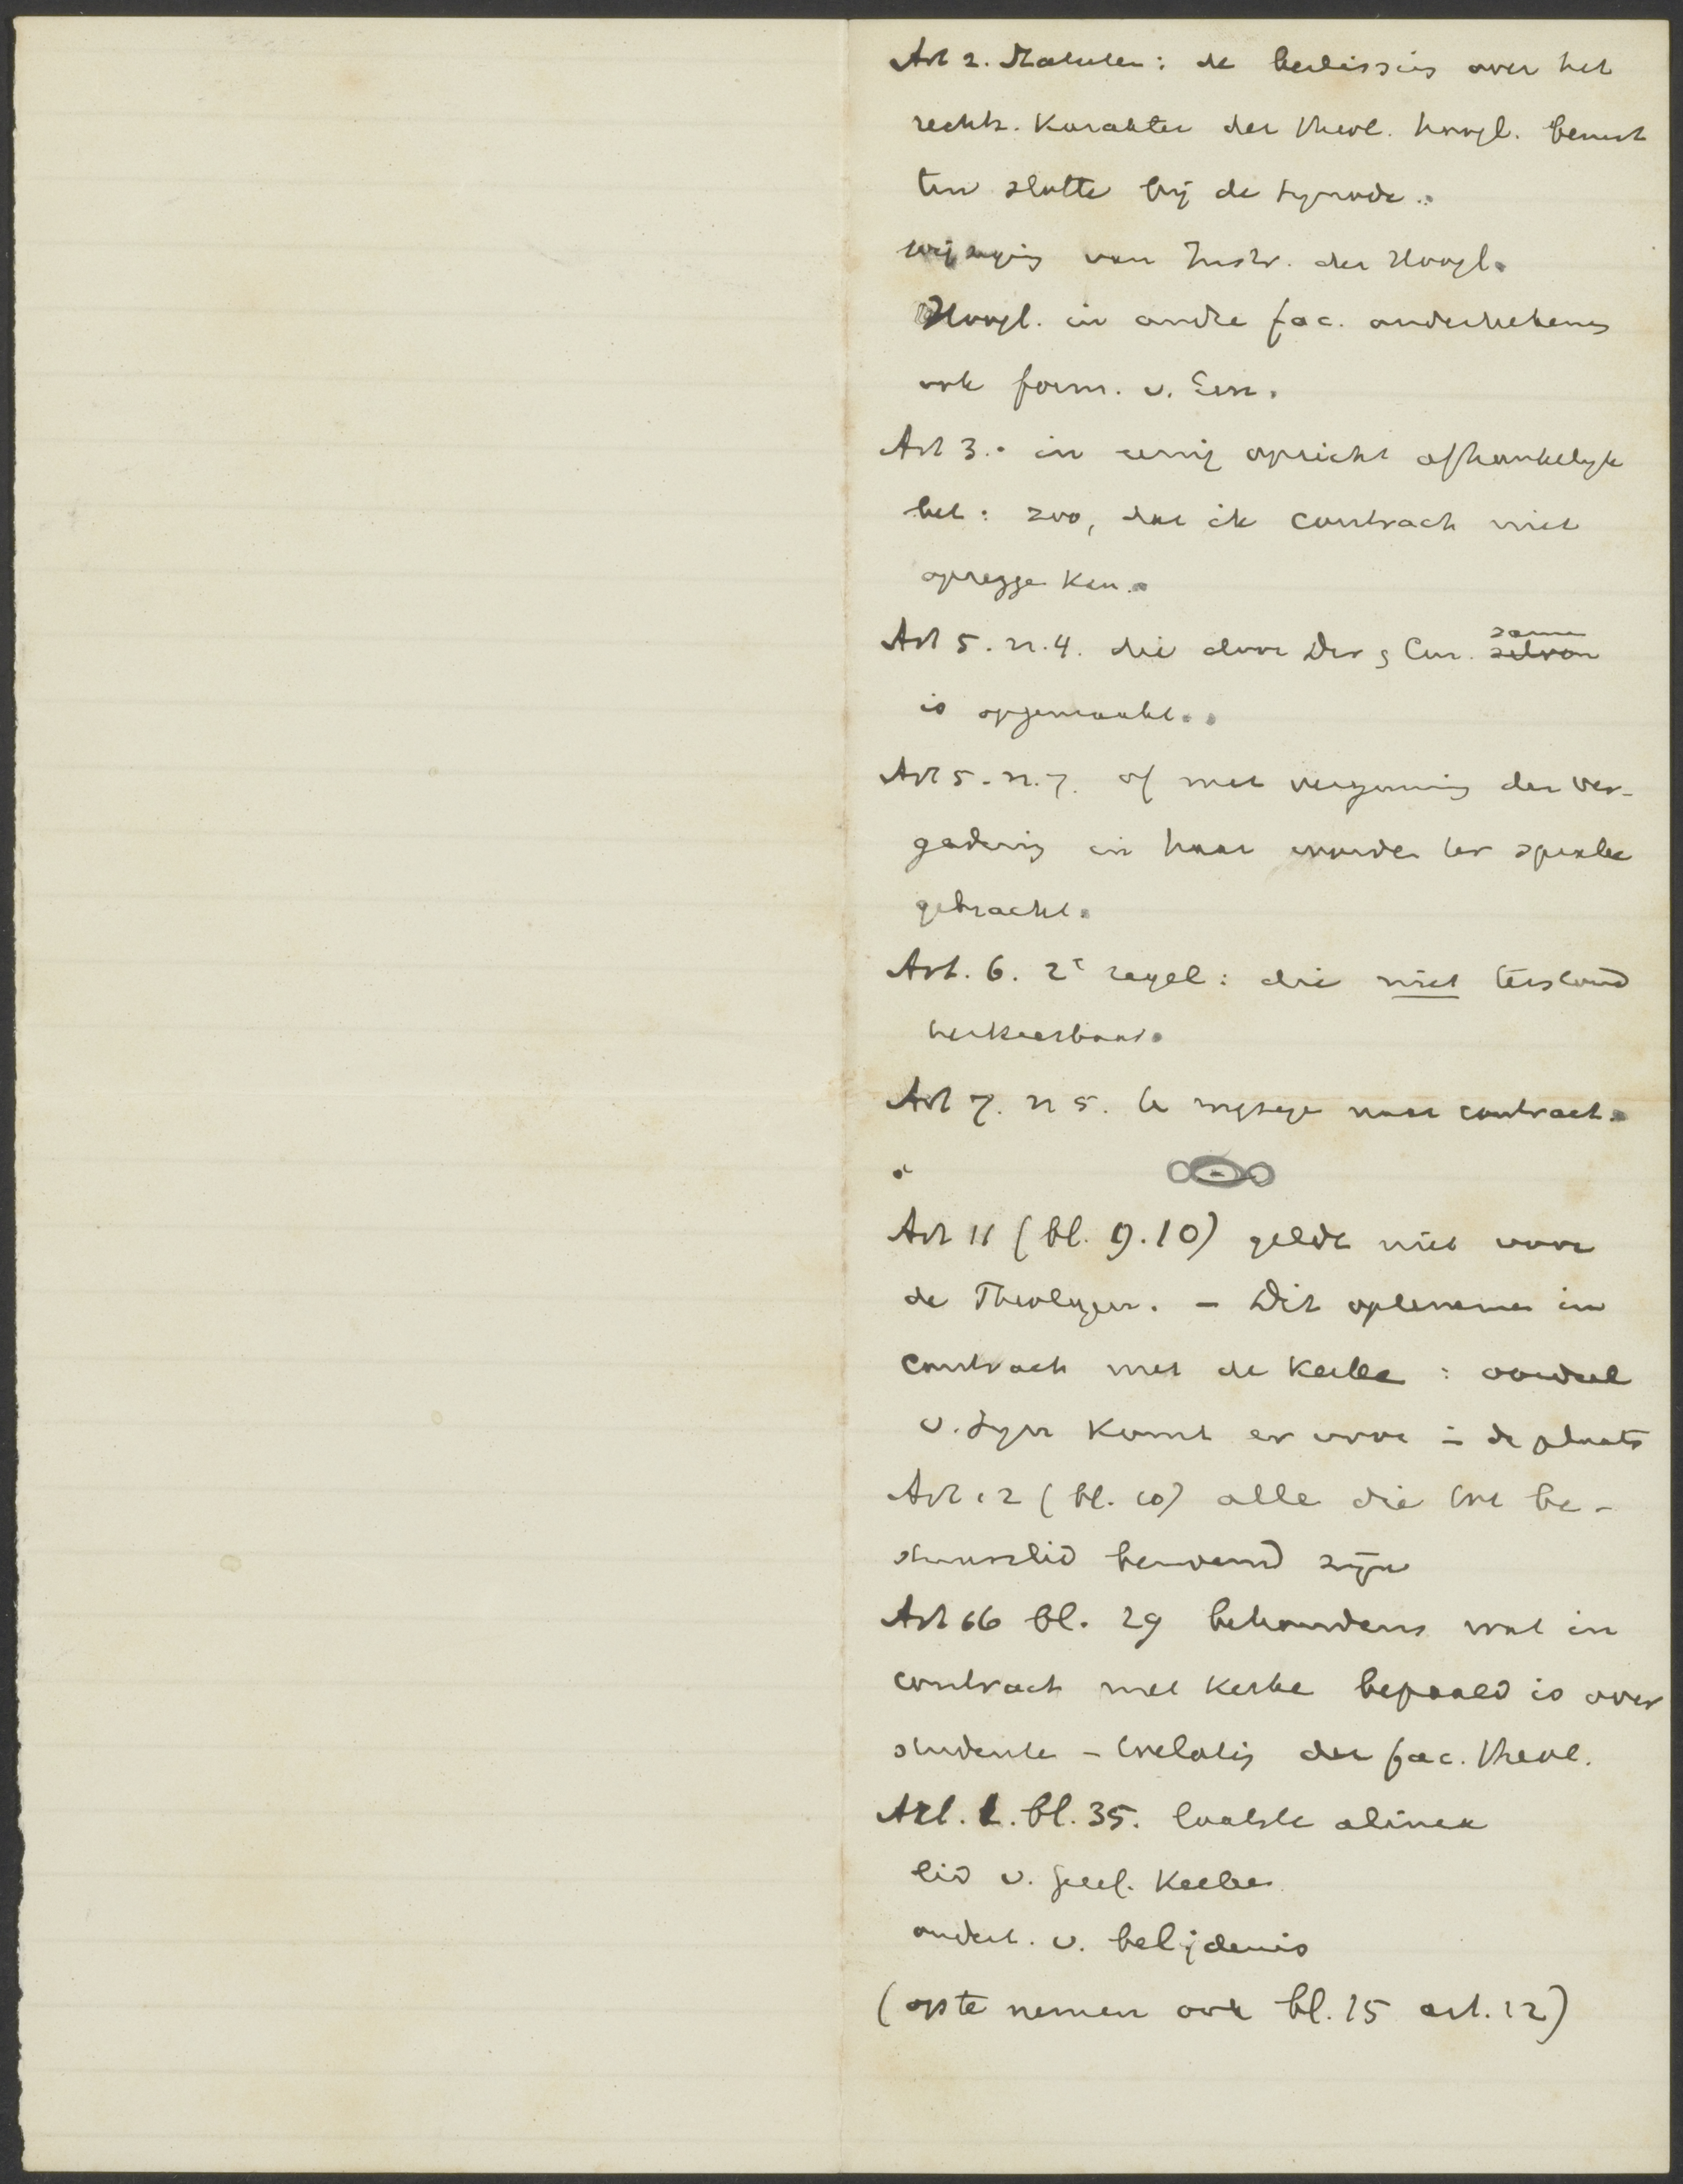 Art 2. Statuten: de beslissing over het
rechts. karakter der theol. hoogl. berust
ten slotte bij de synode.
wijziging van Instr. der Hoogl.
Hoogl. in andre fac. onderteekenen
ook form. v. Een.
Art 3. in eenig opzicht afhankelijk
bet: zoo, dat ik contract niet
opzegge kan.
Art 5. n. 4. die door Dir & Cur. same
is opgemaakt.
Art 5. n. 7. of met vergunning der ver-
gadering in haar midden ter sprake
gebracht.
Art. 6. 2e regel: die niet terstond
verkeerbaar.
Art 7. n 5. te wijzige naar contract.
Art 11 (bl. 9.10) geldt niet voor
de Theologen. - Dit opteneme in
contract met de Kerke: oordeel
v. Syn komt er voor in de plaats
Art 12 (bl. 10) alle die tot be-
stuurslid benoemd zijn
Art 66 bl. 29 behoudens wat in
contract met Kerke bepaald is over
studente - der fac. theol.
Art. 1. bl. 35. laatste alinea
lid v. Geref. Kerken
ondert. v. belijdenis
(op te nemen ook bl. 15 art. 12)